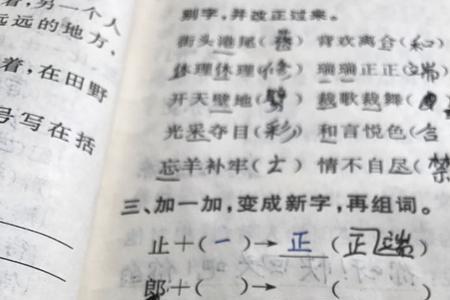 着，另一个人
远远的地方、
着，在田野
号写在括
别字，并改正过来。
街头港尾（巷） 背欢离合（和）
休理休理（修） 瑞瑞正正（端）
开天壁地（ ） 裁歌裁舞（ ）
光采夺目（彩） 和言悦色（ ）
忘羊补牢（ ） 情不自尽（禁
三、加一加，变成新字，再组词。
止＋（一）→正（正端）
郎＋（ ）→ （ ）